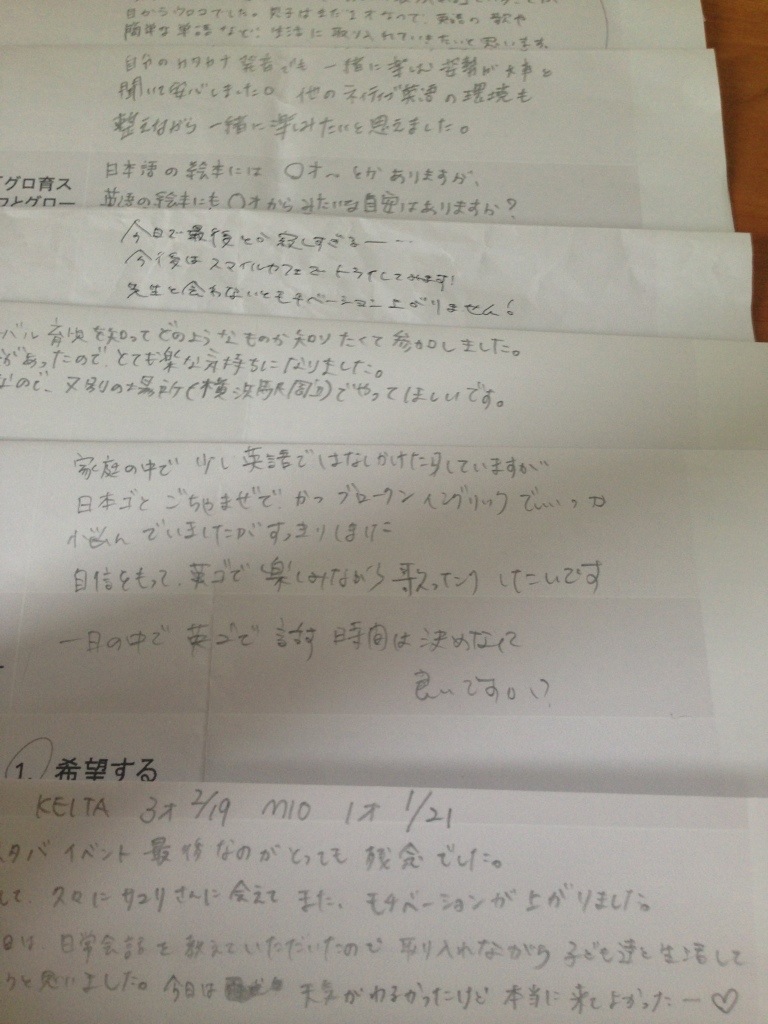 目からウロコでした。息子はまだ2才なので、英語の歌や
簡単な単語など、生活に取り入れていきたいと思います。
自分のカタカナ発音でも 一緒に楽しむ姿勢が大事と
聞いて安心しました。他のネイティブ英語の環境も
整えながら 一緒に楽しみたいと思えました。
日本語の絵本には 〇才〜とかありますが、
グロ育ス
英語の絵本にも〇才からみたいな目安はありますか?
つとグロー
今日で最後とか寂しすぎるー…
今後はスマイルカフェでトライしてみます!
先生と会わないとモチベーション上がりません!
バル育児を知ってどのようなものか知りたくて参加しました。
があったので、とても楽な気持ちになりました。
なので、又別の場所(横浜駅周辺)でやってほしいです。
家庭の中で 少し英語ではなしかけたりしていますが
日本ゴと ごちゃまぜで、かつ ブロークンイングリッシュ でいいのか
悩んでいましたがすっきりしました
自信をもって、英ゴで楽しみながら歌ったりしたいです
一日の中で 英ゴで 話す 時間は決めなくて
良いですか?
1. 希望する
KEITA 3才 2/19 MIO 1才 1/21
タバイベント 最後なのがとっても 残念でした。
して、久々にサユリさんに会えて また、モチベーションが上がりました。
日は、日常会話を教えていただいたので 取り入れながら 子ども達と生活して
うと思いました。今日は 天気がわるかったけど 本当に来てよかったー♡